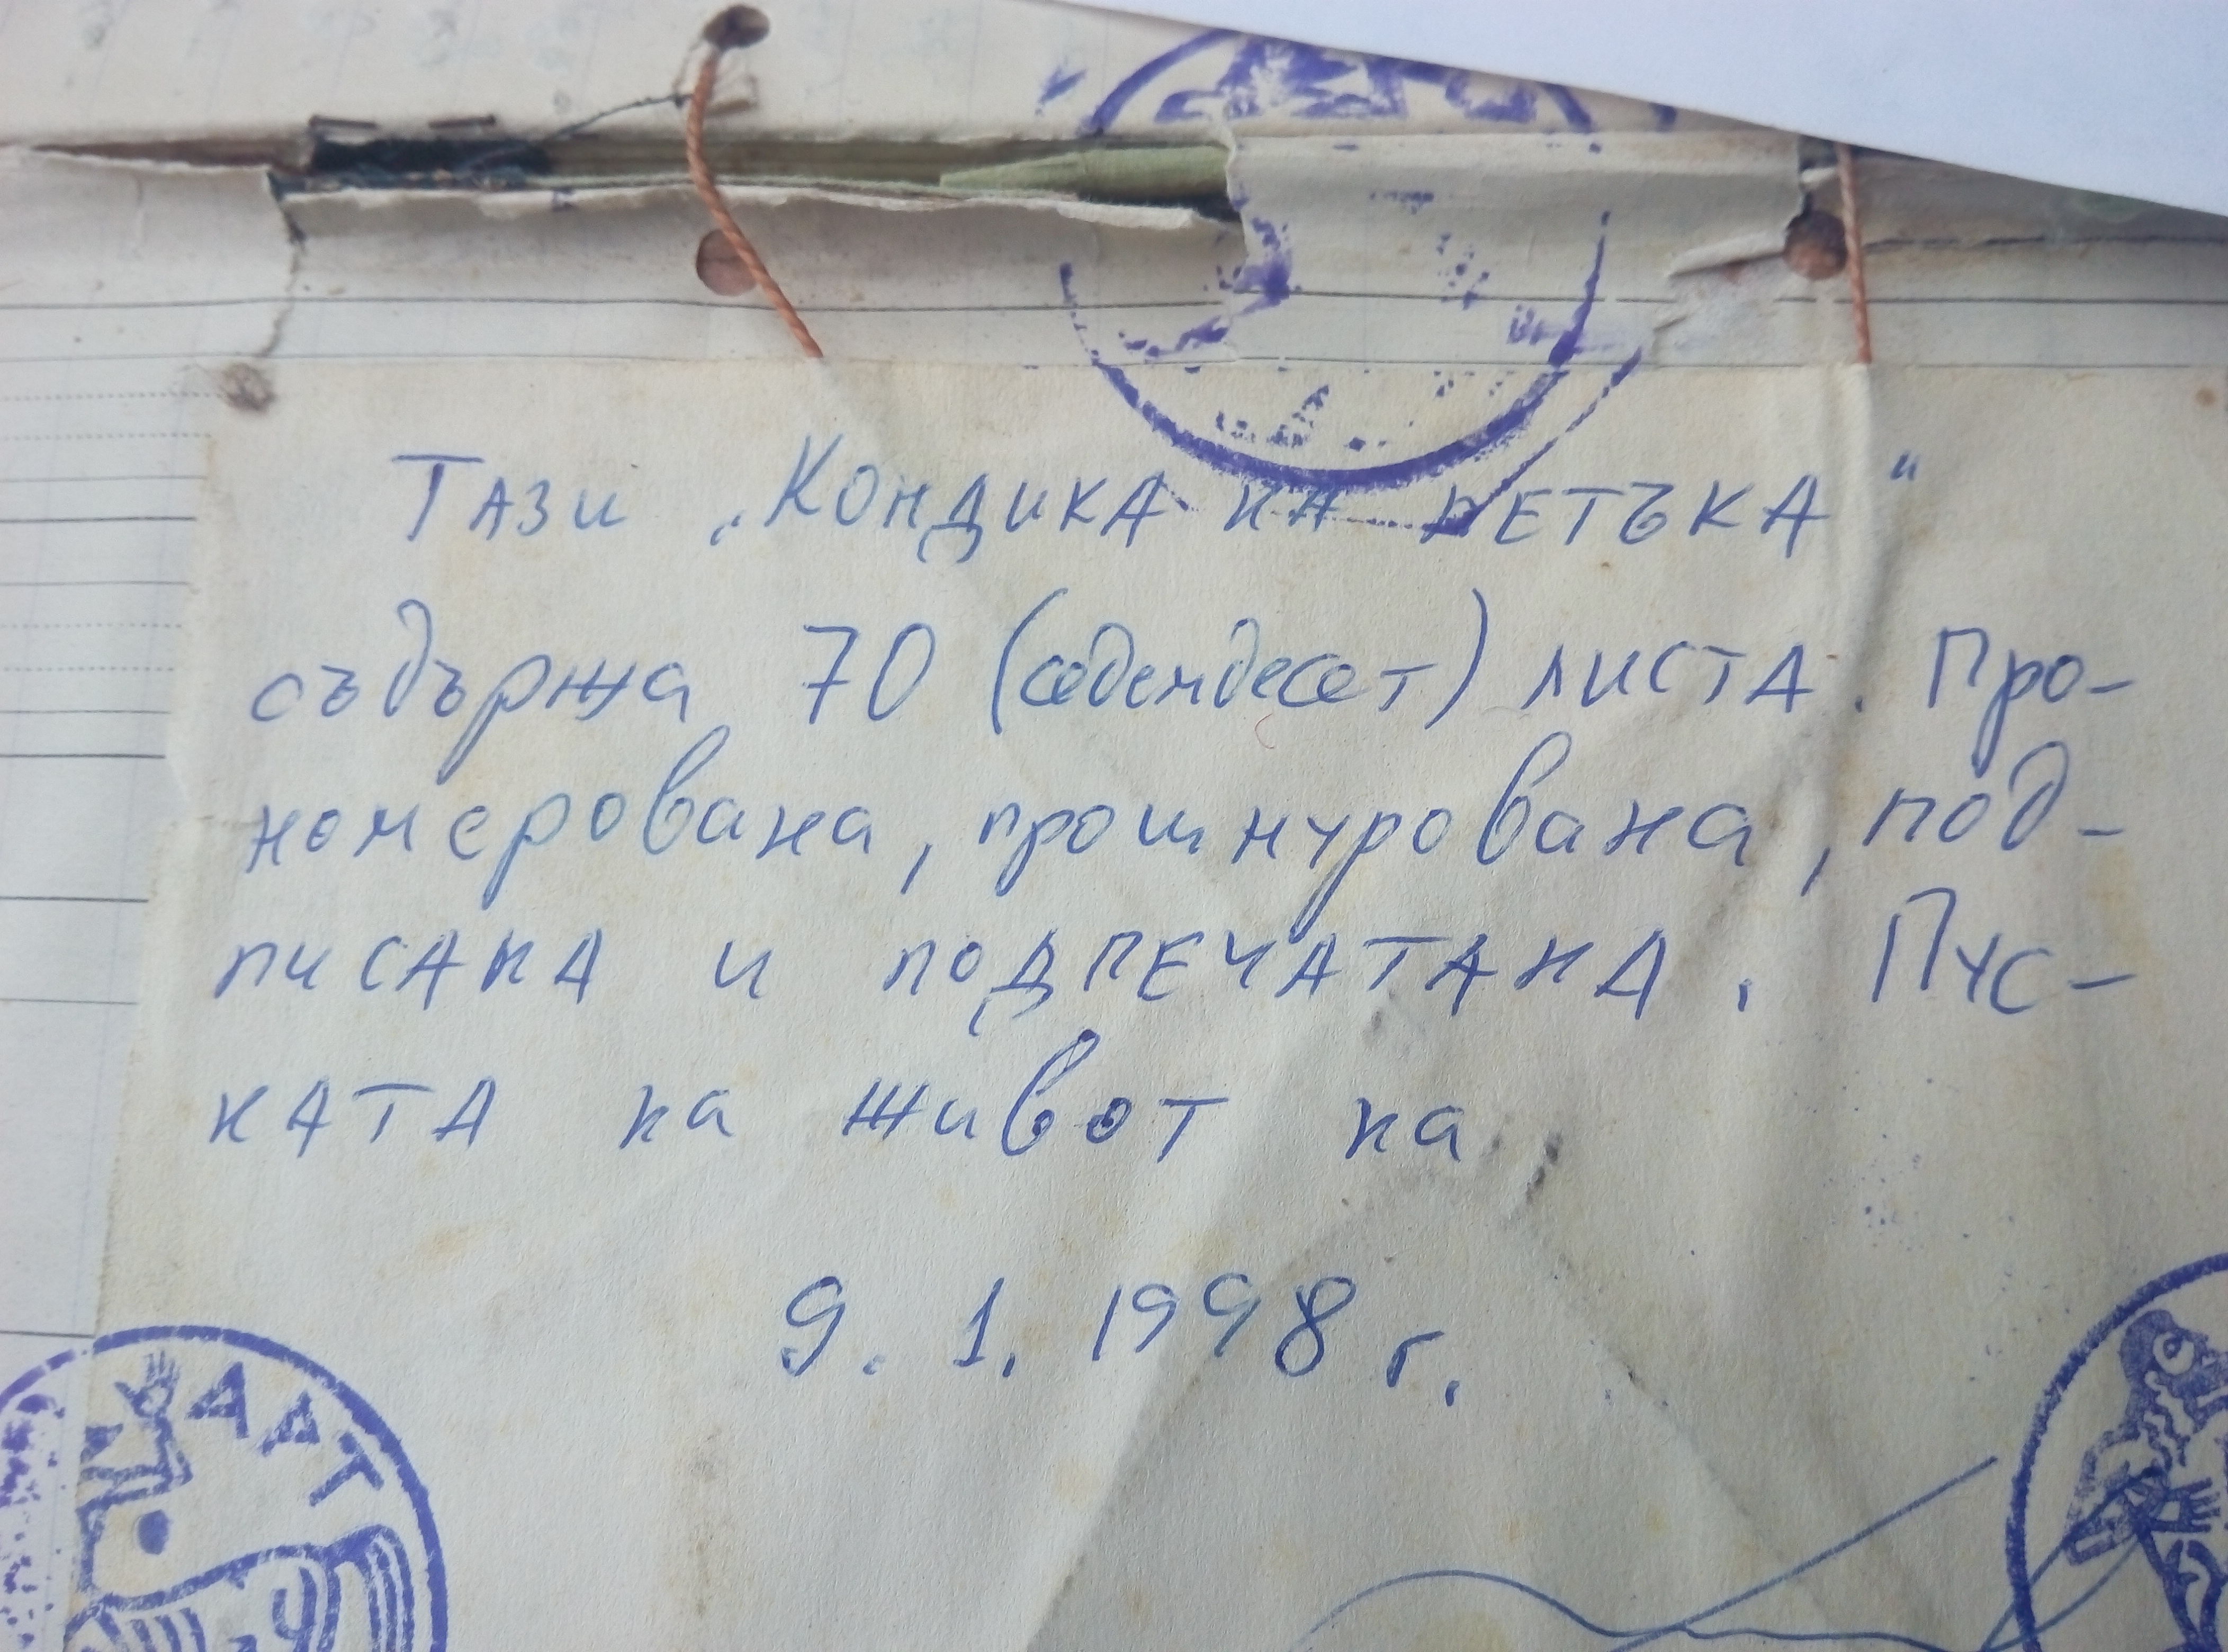 Тази „Кондика на петъка"
съдържа 70 (седемдесет) листа. Про-
номерована, прошнурована, под-
писана и подпечатана. Пус-
ната на живот на
9. 1. 1998 г.
ААТ